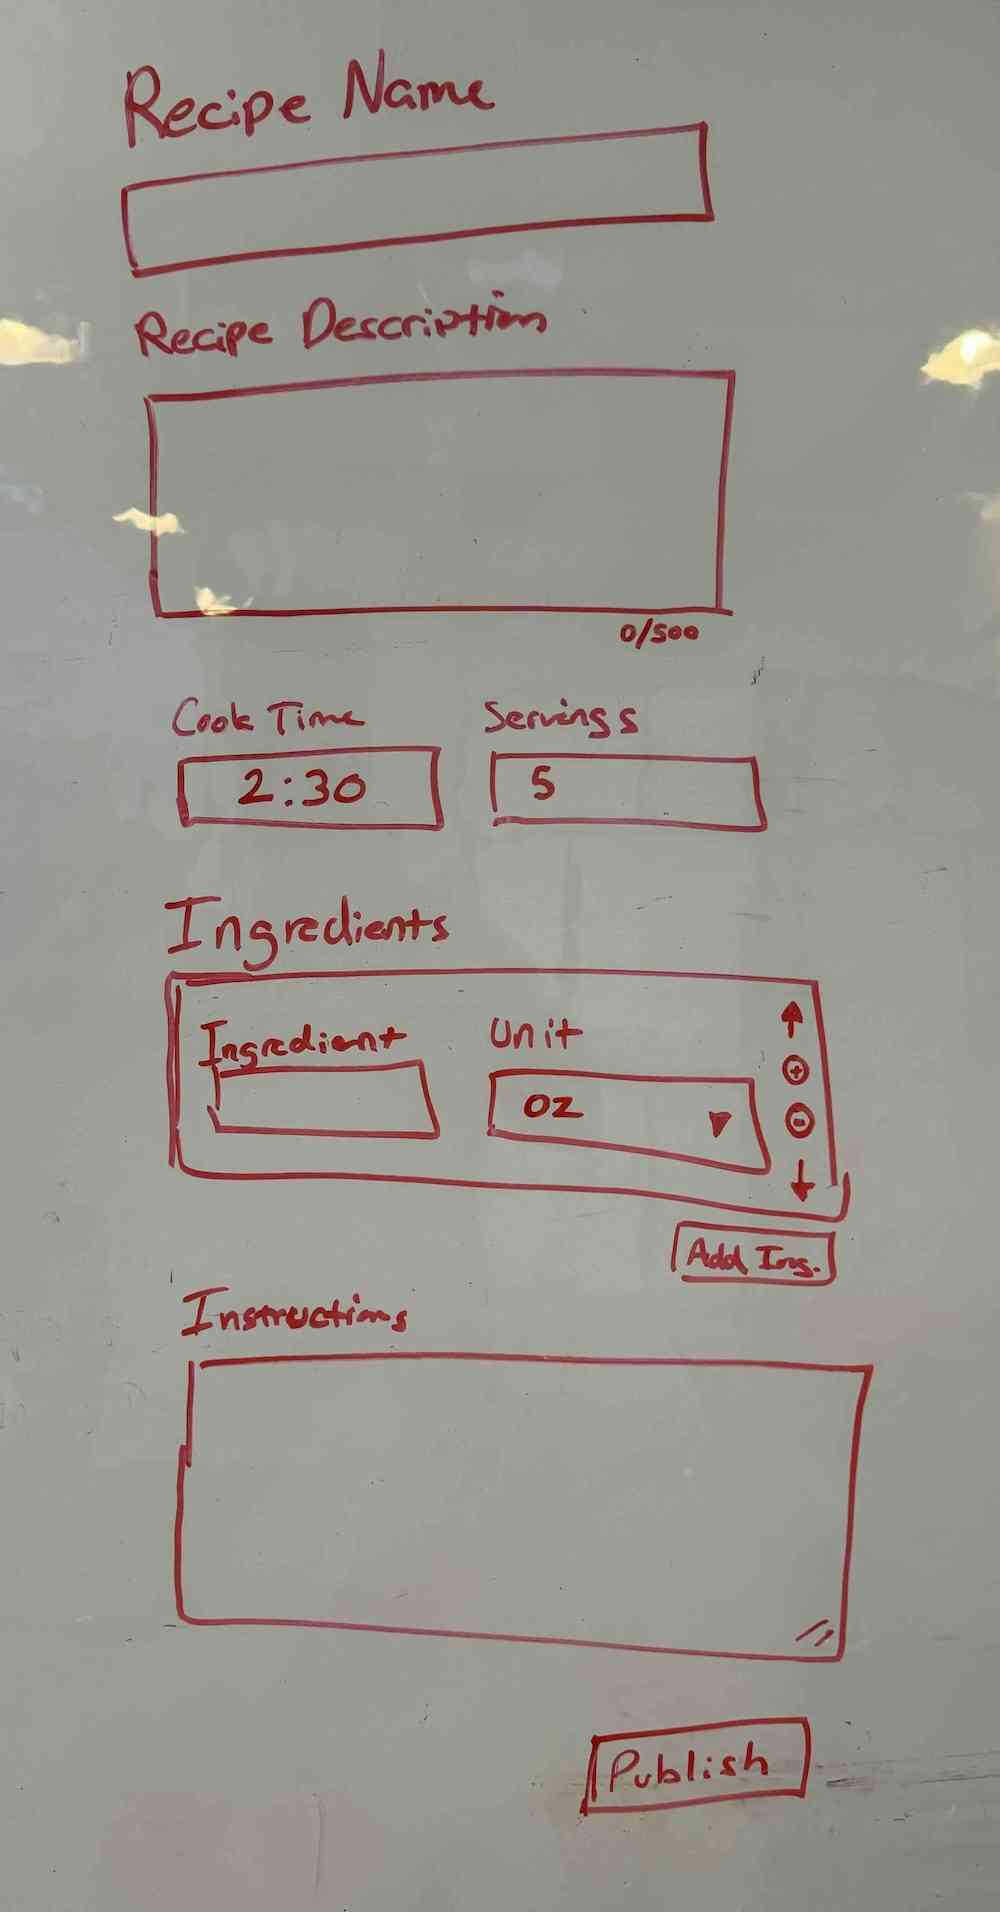 Recipe Name
Recipe Description
0/500
Cook Time
Servings
2:30
5
Ingredients
Ingredient
Unit
oz
Add Ing.
Instructions
Publish